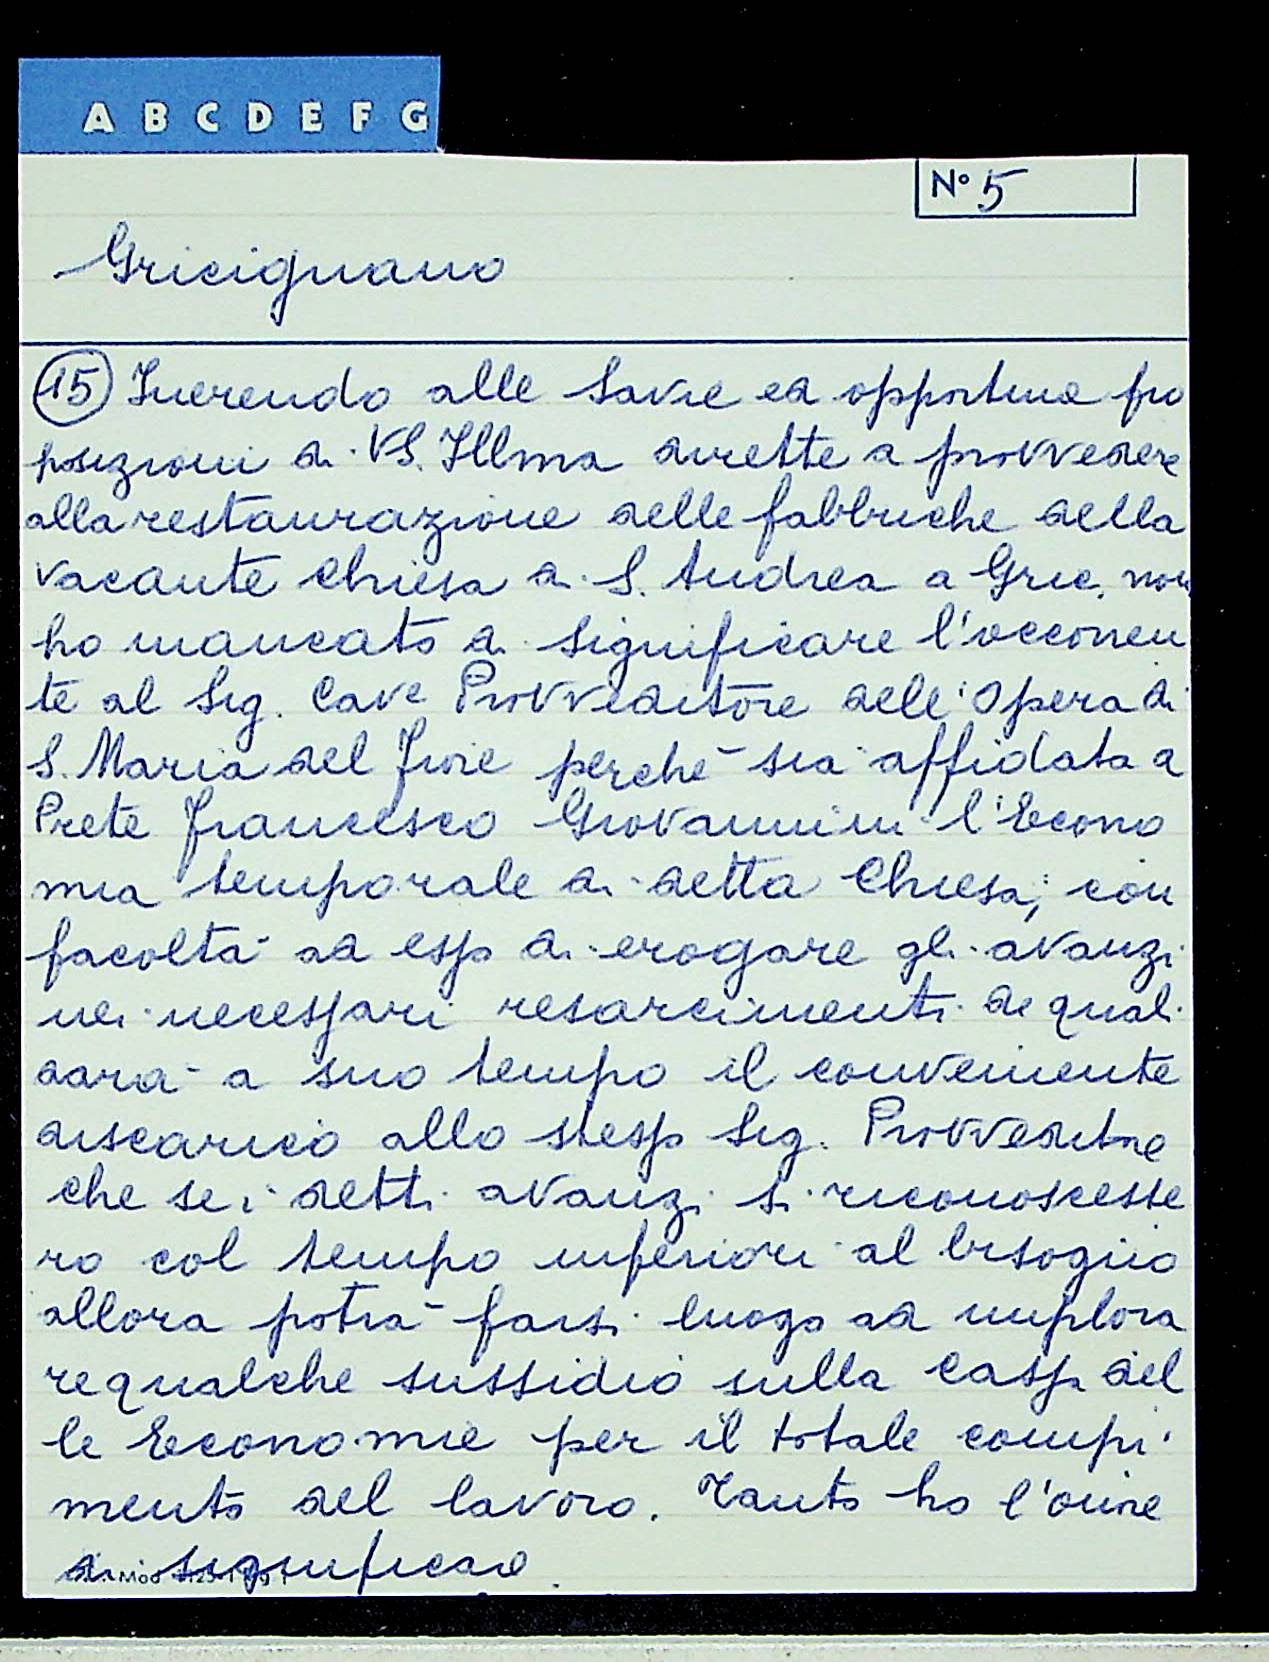 A B C D E F G
N° 5
Gricignano
15 Inerendo alle savie ed opportune pro
posizioni di VS. Illma dirette a provvedere
alla restaurazione delle fabbriche della
vacante chiesa di S. Andrea a Gric. non
ho mancato di significare l'occorren
te al Sig. Cave Provveditore dell'Opera di
S. Maria del Fiore perché sia affidata a
Prete Francesco Giovannini l'Econo
mia temporale di detta Chiesa, con
facoltà ad esso di erogare gli avanzi
nei necessari resarcimenti di quali
darà a suo tempo il conveniente
discarico allo stesso Sig. Provveditore
che se i detti avanzi si riconoscesse
ro col tempo inferiori al bisogno
allora potrà farsi luogo ad implora
re qualche sussidio sulla cassa del
le Economie per il totale compi
mento del lavoro. Tanto ho l'onore
di significare